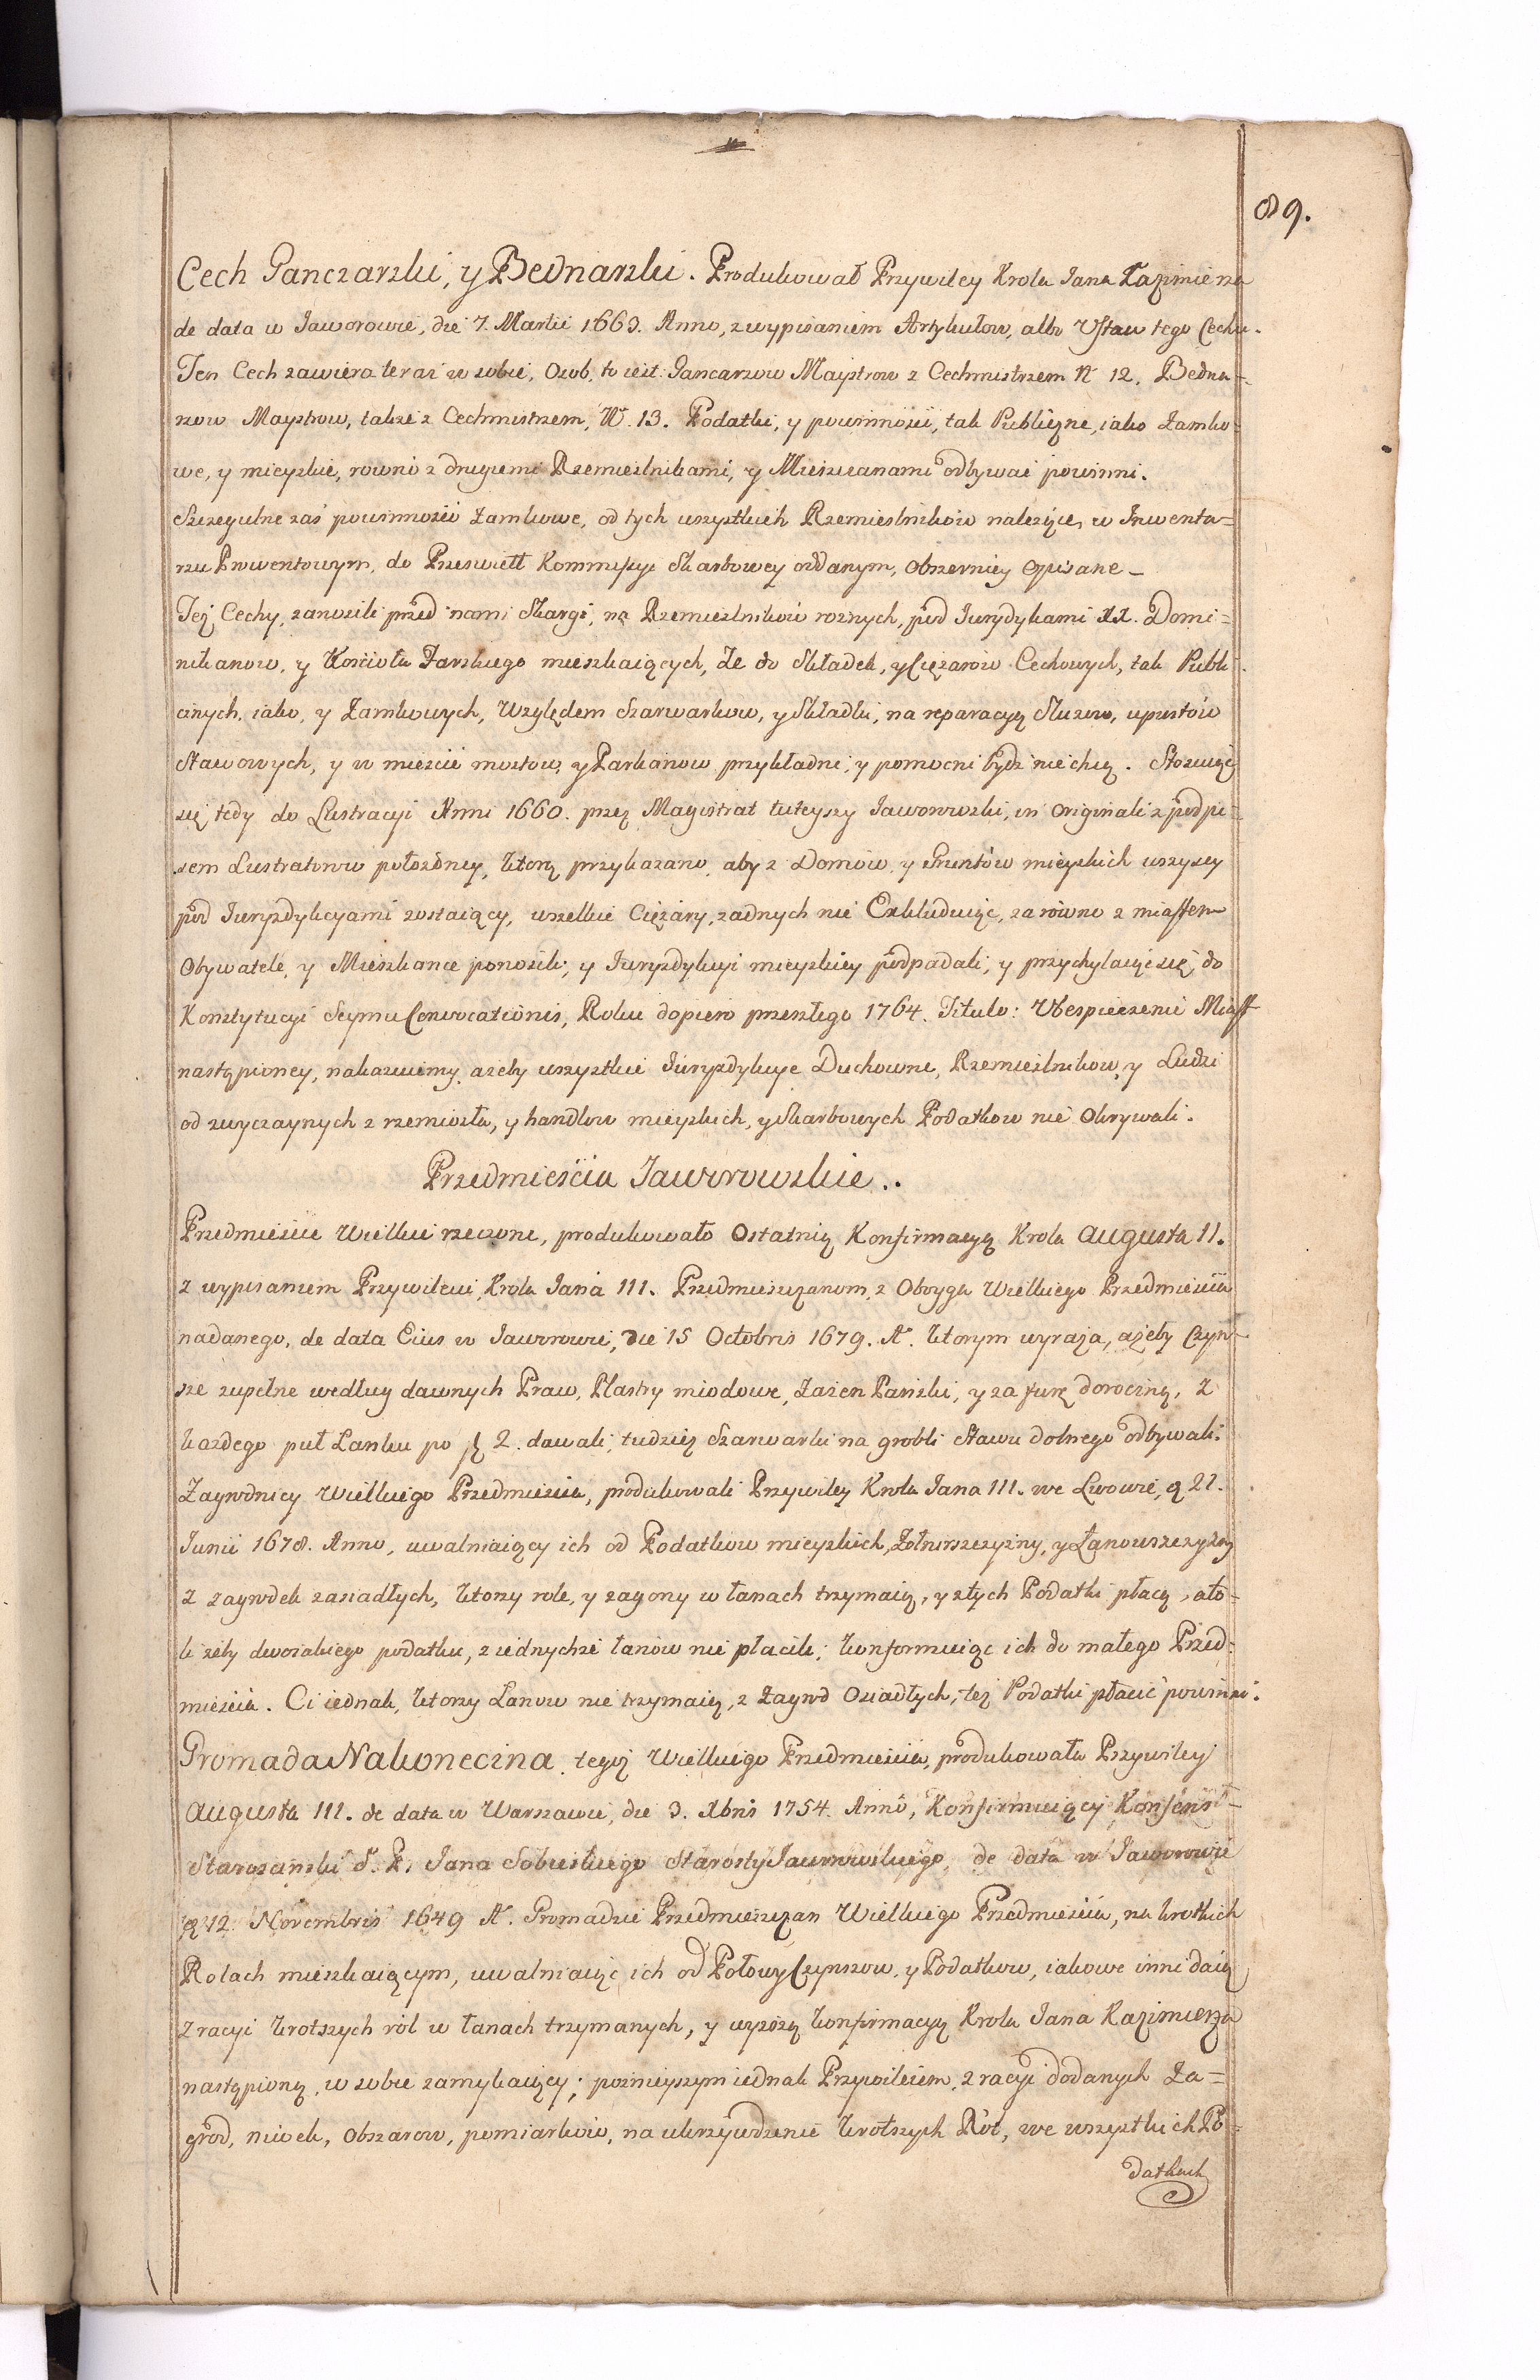 89.
Cech Ganczarski, y Bednarski. Produkował Przywiley Krola Jana Kazimierza
de data w Jaworowie, die 7. Martii 1663. Anno, z wypisaniem Artykułow, albo Ustaw tego Cechu.
Ten Cech zawiera teraz w sobie, Osob, to iest: Gancarzow Maystrow z Cechmistrzem N 12. Bedna=
rzow Maystrow, także z Cechmistrzem, N. 13. Podatki, y powinności, tak Publiczne, iako Zamko=
we, y mieyskie, rowno z drugiemi Rzemieślnikami, y Mieszczanami odbywać powinni.
Szczegulne zaś powinności Zamkowe, od tych wszystkich Rzemieslnikow należące, w Inwenta=
rzu Prowentowym, do Przeświett Kommissyi Skarbowey oddanym, Obszerniey Opisane _
Też Cechy, zanosili przed nami Skargi, na Rzemieslnikow roznych, pod Jurydykami XX. Domi=
nikanow, y Kościoła Farskiego mieszkaiących, Ze do Składek, y Ciężarow Cechowych, tak Publi=
cznych, iako, y Zamkowych, Względem Szarwarkow, y Składki, na reparacyą Sluzow, upustów
Stawowych, y w mieście mostow, y Parkanow przykładni, y pomocni bydz nie chcą. Stosuiąc
się tedy do Lustracyi Anni 1660. przez Magistrat tuteyszy Jaworowski, in Originali z podpi=
sem Lustratorow położoney, ktorą przykazano, aby z Domów, y Gruntów mieyskich wszyscy
pod Juryzdykcyami zostaiący, wszelkie Ciężary, zadnych nie Exkluduiąc, zarówno z miastem
Obywatele, y Mieszkance ponosili; y Juryzdykcyi mieyskiey podpadali, y przychylaiąc się do
Konstytucyi Seymu Convocationis, Roku dopiero przeszłego 1764. Titulo: Ubespieczenie Miast
nastąpioney, nakazuiemy, ażeby wszystkie Juryzdykcye Duchowne, Rzemieślnikow, y Ludzi
od zwyczaynych z rzemiosła, y handlow mieyskich, y Skarbowych Podatkow nie Okrywali.
Przedmieścia Jaworowskie..
Przedmieście Wielkie rzeczone, produkowało Ostatnią Konfirmacyą Krola Augusta II.
z wypisaniem Przywileiu, Krola Jana III. Przedmieszczanom, z Obryga Wielkiego Przedmieścia
nadanego, de data Eius w Jaworowie, die 15 Octobris 1679. A. ktorym wyraża, ażeby Czyn=
sze zupełne według dawnych Praw, Plastry miodowe, Zażen Pański, y za furę doroczną, z
każdego puł Lanku po fl 2. dawali, tudziez Szarwarki na grobli Stawu dolnego odbywali.
Zagrodnicy Wielkiego Przedmieścia, produkowali Przywiley Krola Jana III. we Lwowie, d 22.
Junii 1678. Anno, uwalniaiący ich od Podatkow mieyskich, Żołnierszczyzny, y Łanowszczyzny
z zagrodek zasiadłych, ktorzy role, y zagony w łanach trzymaią, y z tych Podatki płacą, ato=
li żeby dwoiakiego podatku, z iednychże łanów nie płacili; konformuiąc ich do małego Przed=
mieścia. Ci iednak, ktorzy Lanow nie trzymaią, z Zagrod Osiadłych, też Podatki płacić powinni.
Gromada Nakonecina, tegoż Wielkiego Przedmieścia, produkowała Przywiley
Augusta III. de data w Warszawie, die 3. Xbris 1754. Anno, Konfirmuiący Konsens
Starosciński S. P. Jana Sobieskiego Starosty Jaworowskiego, de data w Jaworowie
d 12. Novembris 1649 A. Gromadzie Przedmieszczan Wielkiego Przedmieścia, na krotkich
Rolach mieszkaiącym, uwalniaiąc ich od Połowy Czynszow, y Podatkow, iakowe inni daią
z racyi krotszych ról w łanach trzymanych, y wyższą konfirmacyą Krola Jana Kazimierza
nastąpioną, w sobie zamykaiący; poznieyszym iednak Przywileiem, z racyi dodanych Za=
grod, niwek, Obszarow, pomiarkow, na ukrzywdzenie krotszych Rol, we wszystkich Po=
datkach